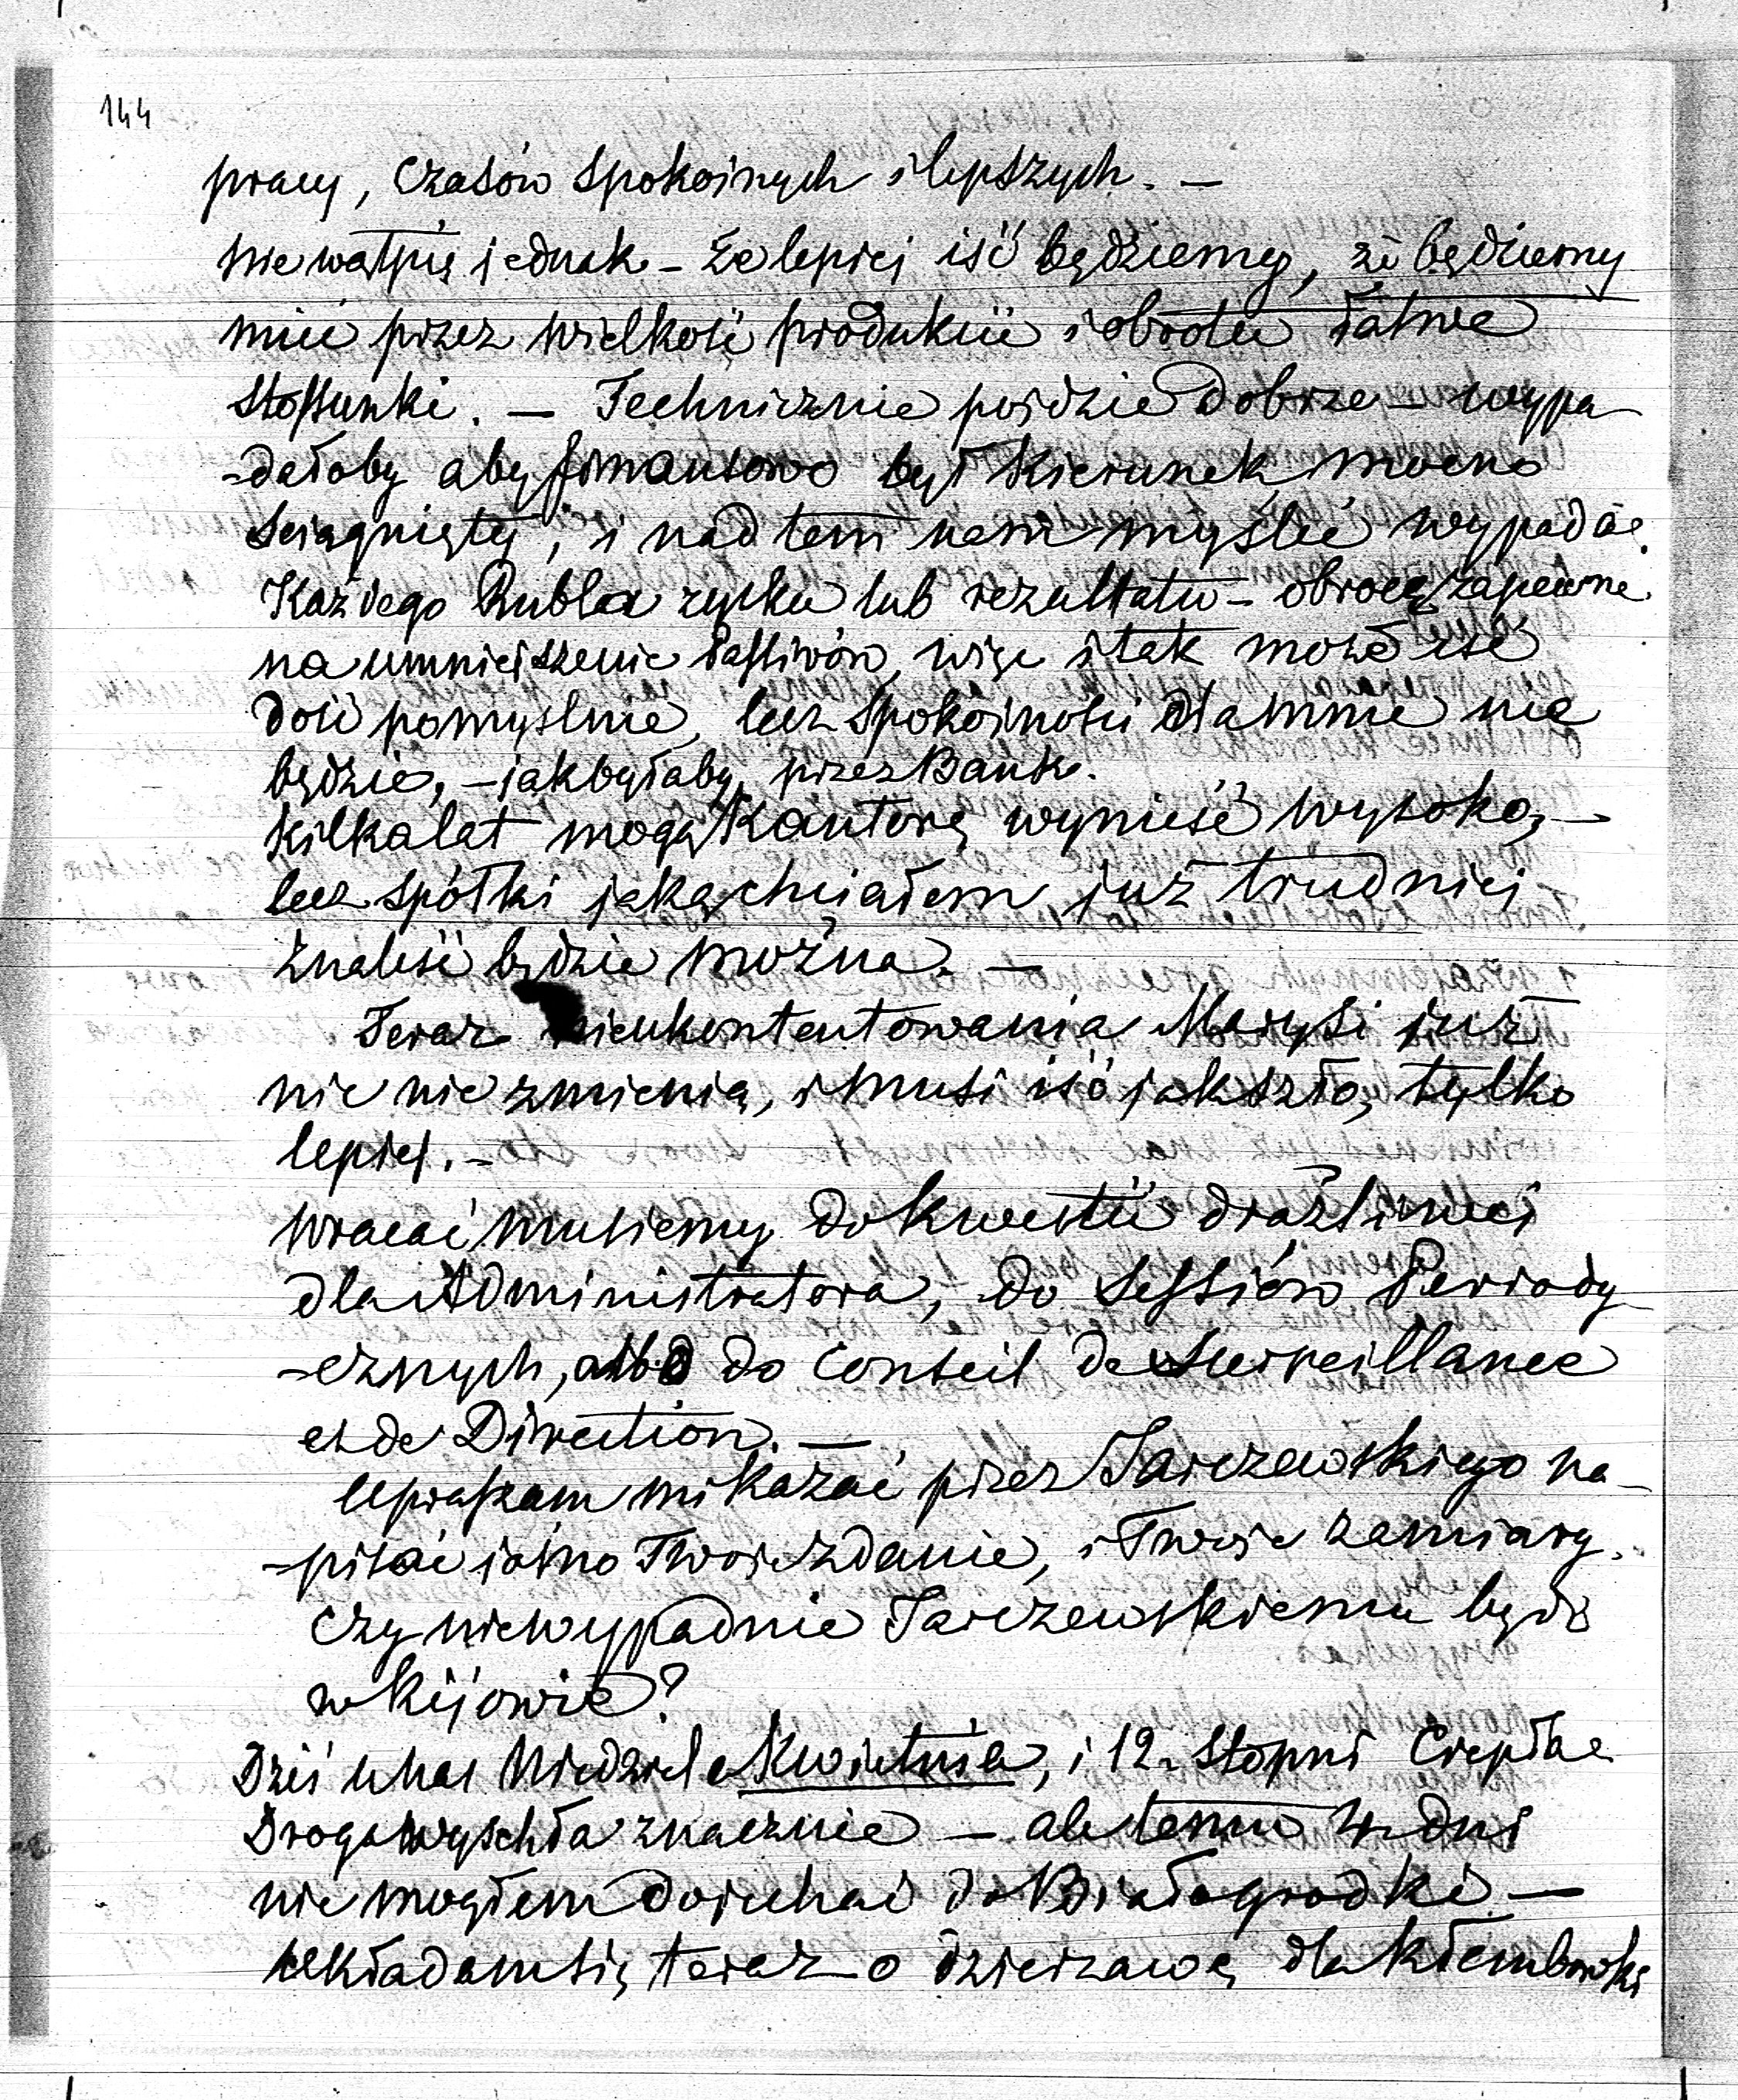 144
pracy, Czasów Spokoinych i lepszych. —
nie wątpię jednak – że lepiej iść będziemy, że będziemy
mieć przez wielkość produkcii i obrotu łatwe
stossunki. — Technicznie pojdzie dobrze – wypa
-dałoby aby finansowo był kierunek mocno
ściągnięty, i nad tem nam myśleć wypada.
Każdego Rubla zysku lub rezultatu – obrocę zapewne
na umniejszenie Passiwów, więc i tak może iść
dość pomyślnie, lecz Spokoiności dla mnie nie
będzie, – jak byłaby przez Bank.
Kilka lat mogą Kantorę wynieść wysoko, —
lecz spółki jaką chciałem już trudniej
znaleść będzie można. —
Teraz nieukontentowania Marysi już
nic nie zmienią, i musi iść jak szło, tylko
lepiej. –
Wracać musiemy do kwestii drażliwej
dla Administratora, do Sessiów Periody
-cznych, albo do Conseil de Surveillance
et de Direction. —
Upraszam mi kazać przez Jarczewskiego na-
-pisać jasno Twoje zdanie, i Twoje zamiary.
Czy niewypadnie Jarczewskiemu bydź
w Kijowie?
Dziś u nas Niedziela Kwietnia, i 12. Stopni Ciepła
Droga wyschła znacznie — ale temu 4 dni
nie mogłem dojechać do Białogrodki —
układam się teraz o dzierzawę dla Kłembowski